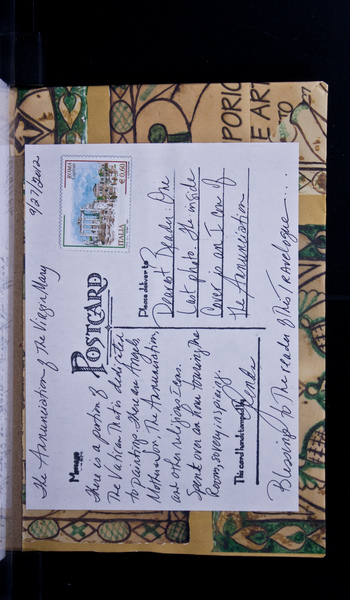 The Annunciation of the Virgin Mary
9/27/2012
Message
POSTCARD
There is a portion of
The Vatican That is dedicated
to paintings. There are Angels,
Mother + Son, The Annunciation,
and other religious Icons.
Spent over an hour touring the
Room, so very inspiring.
This card hand stamped by
ROMA
€ 0,60
ITALIA
Please deliver to
Dearest Reader One
last photo. The inside
Cover is an Icon of
The Annunciation
Blessings To The reader of this Travelogue...
PORIC
E ART
TO